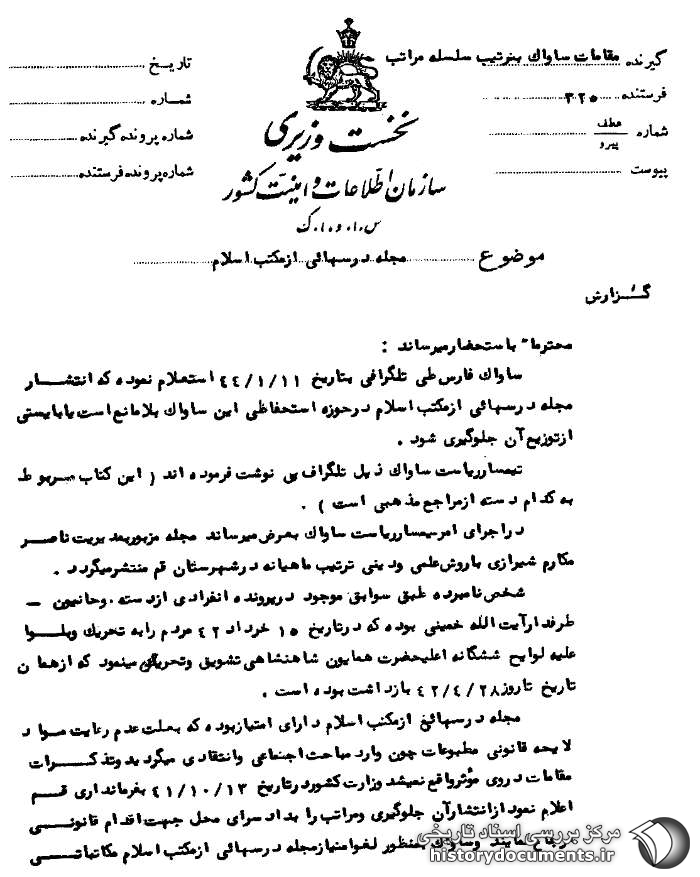 گیرنده مقامات ساواک بترتیب سلسله مراتب
فرستنده ۳۲۵
شماره عطف پیرو
پیوست
تاریخ
شماره
شماره پرونده گیرنده
شماره پرونده فرستنده
نخست وزیری
سازمان اطلاعات و امنیت کشور
س.ا.و.ا.ک
موضوع مجله درسهائی ازمکتب اسلام
گزارش
محترما" باستحضارمیرساند :
ساواک فارس طی تلگرافی بتاریخ ۴۴/۱/۱۱ استعلام نموده که انتشار
مجله درسهائی ازمکتب اسلام درحوزه استحفاظی این ساواک بلامانع است یابایستی
ازتوزیع آن جلوگیری شود .
تیمسارریاست ساواک ذیل تلگراف پی نوشت فرموده اند ( این کتاب مربوط
به کدام دسته ازمراجع مذهبی است ) .
دراجرای امرتیمسارریاست ساواک بعرض میرساند مجله مزبوربمدیریت ناصر
مکارم شیرازی باروش علمی ودینی ترتیب ماهیانه درشهرستان قم منتشرمیگردد .
شخص نامبرده طبق سوابق موجود درپرونده انفرادی ازدسته روحانیون –
طرفدارآیت الله خمینی بوده که درتاریخ ۱۵ خرداد ۴۲ مردم رابه تحریک وبلوا
علیه لوایح ششگانه اعلیحضرت همایون شاهنشاهی تشویق وتحریک مینمود که ازهمان
تاریخ تاروز ۴۲/۴/۲۸ بازداشت بوده است .
مجله درسهائی ازمکتب اسلام دارای امتیازبوده که بعلت عدم رعایت مواد
لایحه قانونی مطبوعات چون وارد مباحث اجتماعی وانتقادی میگردید وتذکرات
مقامات دروی مؤثرواقع نمیشد وزارت کشوردرتاریخ ۴۱/۱۰/۱۳ بفرمانداری قم
اعلام نمود ازانتشارآن جلوگیری ومراتب را بدادسرای محل جهت اقدام قانونی
ارجاع نمایند وساواک بمنظور لغوامتیازمجله درسهائی ازمکتب اسلام مکاتباتی
مرکز بررسی اسناد تاریخی
historydocuments.ir